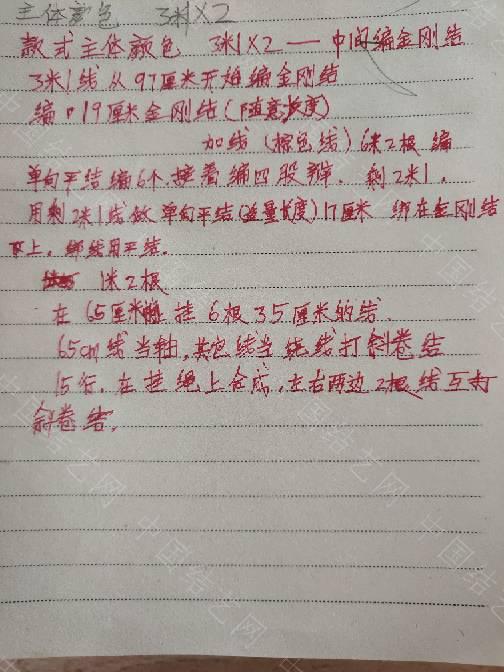 主体颜色 3米1×2
款式主体颜色 3米1×2 — 中间编金刚结
3米1线从97厘米开始编金刚结
编 19厘米金刚结(随意长度)
加线(棕色线)6米2根 编
单向平结编6个,接着编四股辫.剩2米1,
用剩2米1线做单向平结(适量长度)17厘米 绑在金刚结
上,绑线用平结.
1米2根
在65厘米 挂6根35厘米的结.
65cm线当轴,其它线当绕线打斜卷结
15行.在挂绳上合成,左右两边2根线互打
斜卷结.
中国结艺网